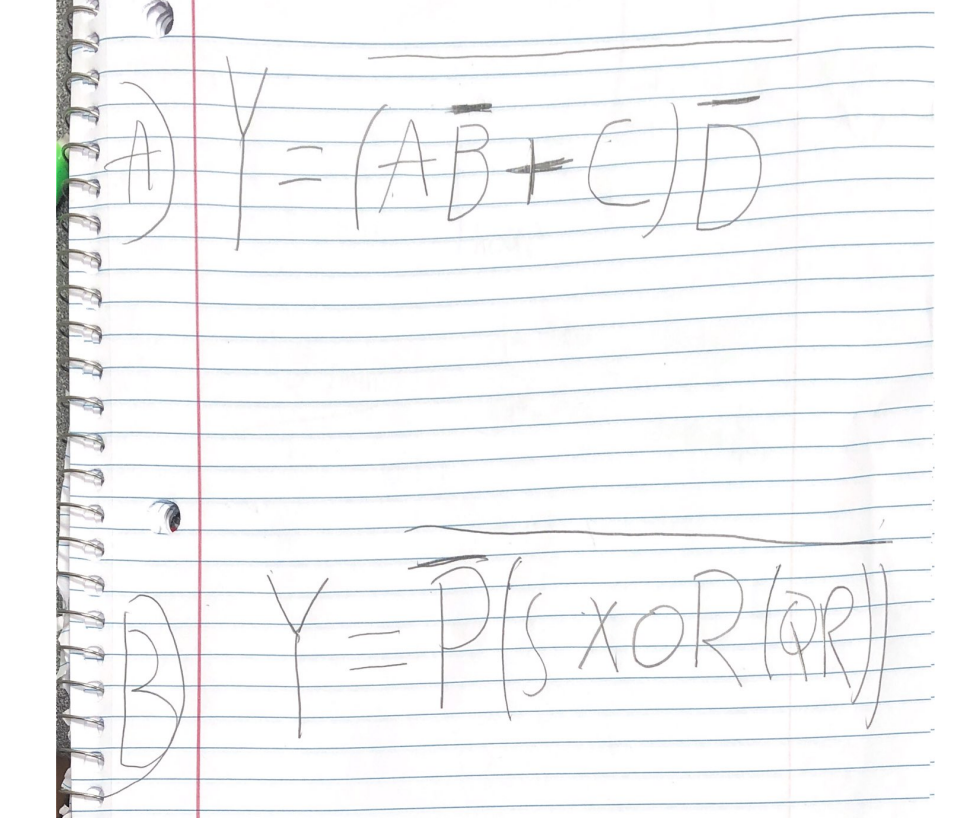 A) Y = \overline{(A\overline{B} + C)\overline{D}}
B) Y = \overline{\overline{P}(S XOR (QR))}